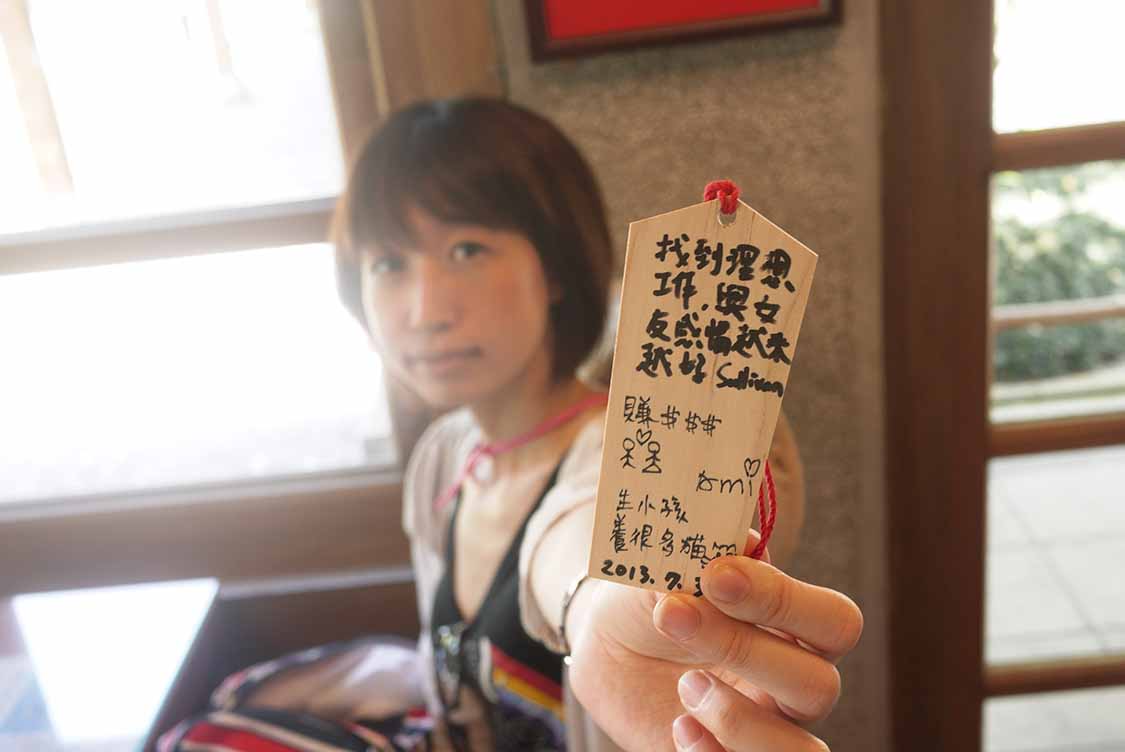 找到理想
工作．與女
友感情越來
越好 Sullivan
賺＄＄＄
ami
生小孩
養很多貓
2013.7.3